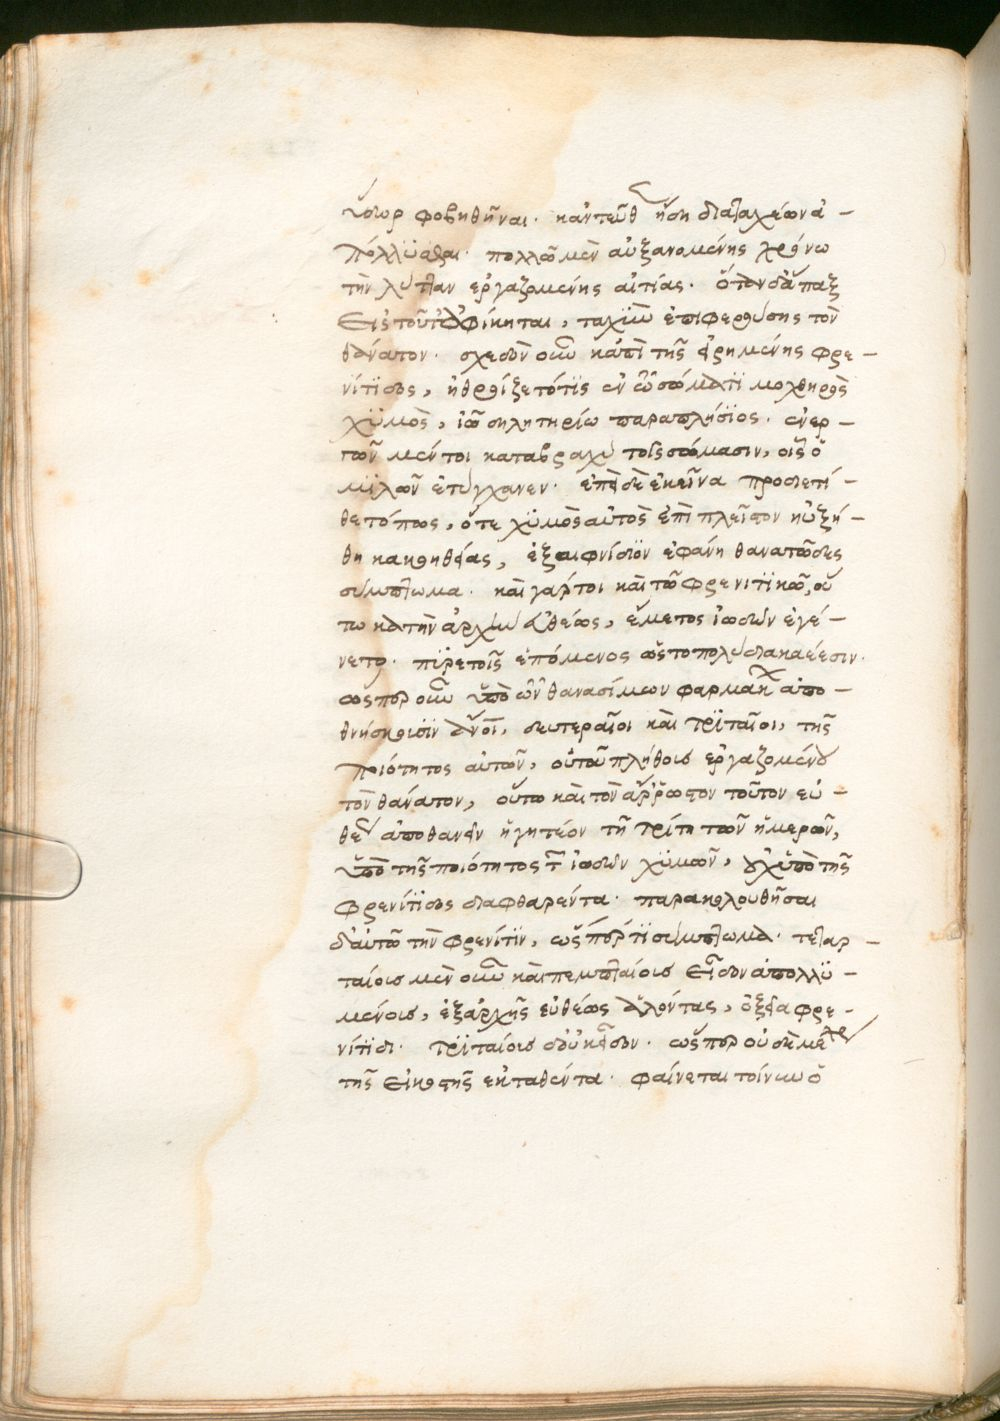 ὕδωρ φοβηθῆναι. κἀντεῦθ ἤδη διαταχέων ἀ-
πόλλϋσθαι. πολλῶ μὲν αὐξανομένης χρόνω
τὴν λύτταν ἐργαζομένης αἰτίας. ὅταν δ' ἅπαξ
εἰς τοῦτ' ἀφίκηται, ταχὺν ἐπιφερούσης τὸν
θάνατον. σχεδὸν οὖν κἀπὶ τῆς εἰρημένης φρε-
νίτϊδος, ἠθροίζετό τϊς ἐν τῶ σώματϊ μοχθηρὸς
χϋμὸς, ἰῶ δηλητηρίω παραπλήσϊος. ἐνερ-
μέντοι καταβραχὺ τοῖς σώμασιν, οἷς ὁ
μϊλῶν ἐτύγχανεν. ἐπεὶ δὲ ἐκεῖνα προσετί-
θετό πως, ὅτε χϋμὸς αὐτὸς ἐπὶ πλεῖστον ηὐξή-
θη κακοηθείας, ἐξαιφνίδϊον ἐφάνη θανατῶδες
σύμπτωμα. καὶ γάρ τοι καὶ τῶ φρενιτϊκῶ, οὕ
τω κατὰ τὴν ἀρχὴν εὐθέως, ἔμετος ἰωδῶν ἐγέ-
νετο. πϋρετοῖς ἑπόμενος ὡς τὸ πολὺ διακαέεσιν.
ὥσπερ οὖν ὑπὸ τῶν θανασίμων φαρμάκ ἀπο-
θνήσκουσϊν ἄνοι, δευτεραῖοι καὶ τρϊταῖοι, τῆς
ποιότητος αὐτῶν, οὐ τοῦ πλήθους ἐργαζομένου
τὸν θάνατον, οὕτω καὶ τὸν ἄρρωστον τοῦτον εὐ-
θὺς ἀποθανεῖν ἡγητέον τῆ τρίτη τῶν ἡμερῶν,
ὑπὸ τῆς ποιότητος τ ἰωδῶν χϋμῶν, οὐχ ὑπὸ τῆς
φρενίτϊδος διαφθαρέντα. παρακολουθῆσαι
δ' αὐτῶ τὴν φρενίτϊν, ὥσπέρ τϊ σύμπτωμα. τεταρ-
ταίους μὲν οὖν καὶ πεμπταίους εἶδον ἀπολλϋ-
μένους, ἐξ ἀρχῆς εὐθέως ἁλόντας, ὀξεία φρε-
νίτϊδι. τρϊταίους δ' οὐκ εἶδον. ὥσπερ οὐδὲ μετὰ
τῆς εἰκοστῆς ἐκταθέντα. φαίνεται τοίνυν ὁ